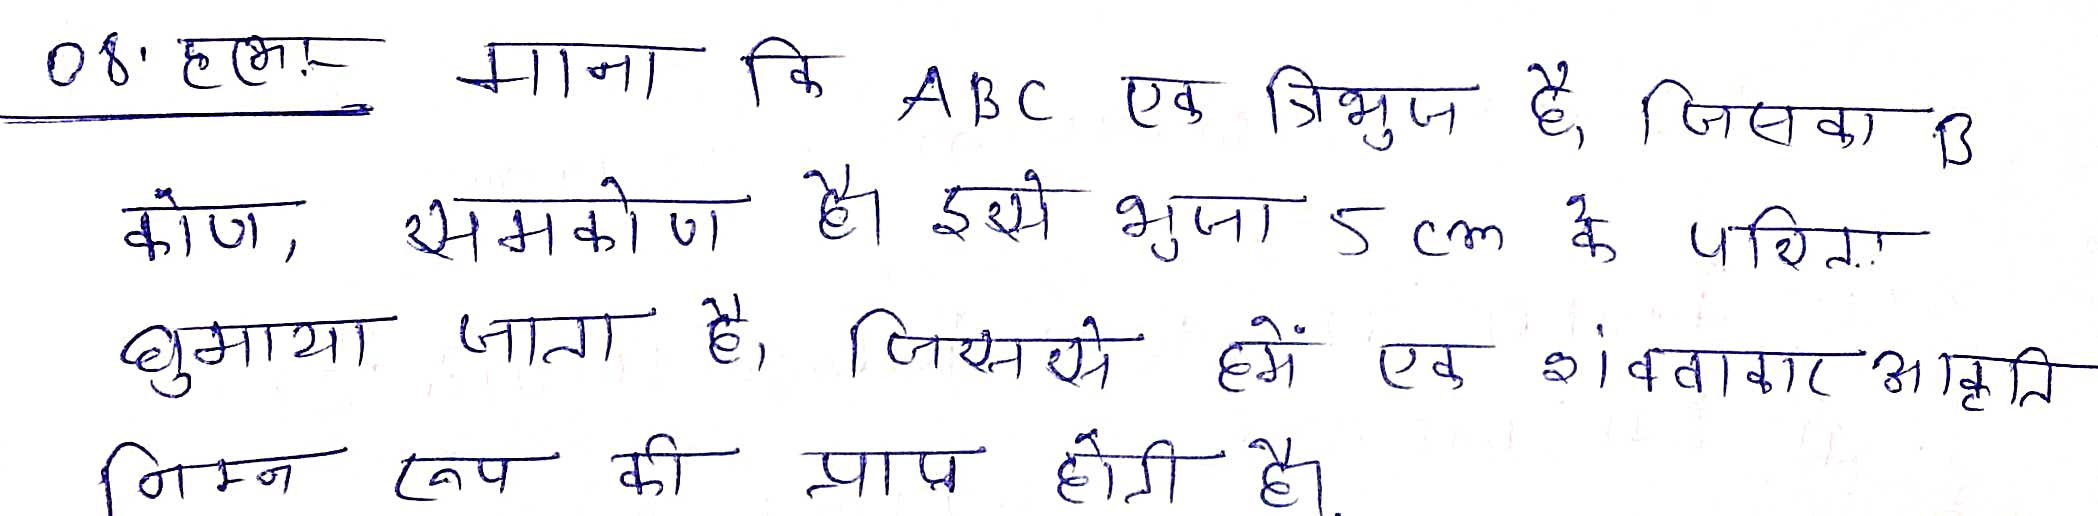 08. हलः- माना कि ABC एक त्रिभुज है, जिसका B
कोण, समकोण है। इसे भुजा 5 cm के परितः
घुमाया जाता है, जिससे हमें एक शंक्वाकार आकृति
निम्न रूप की प्राप्त होती है।